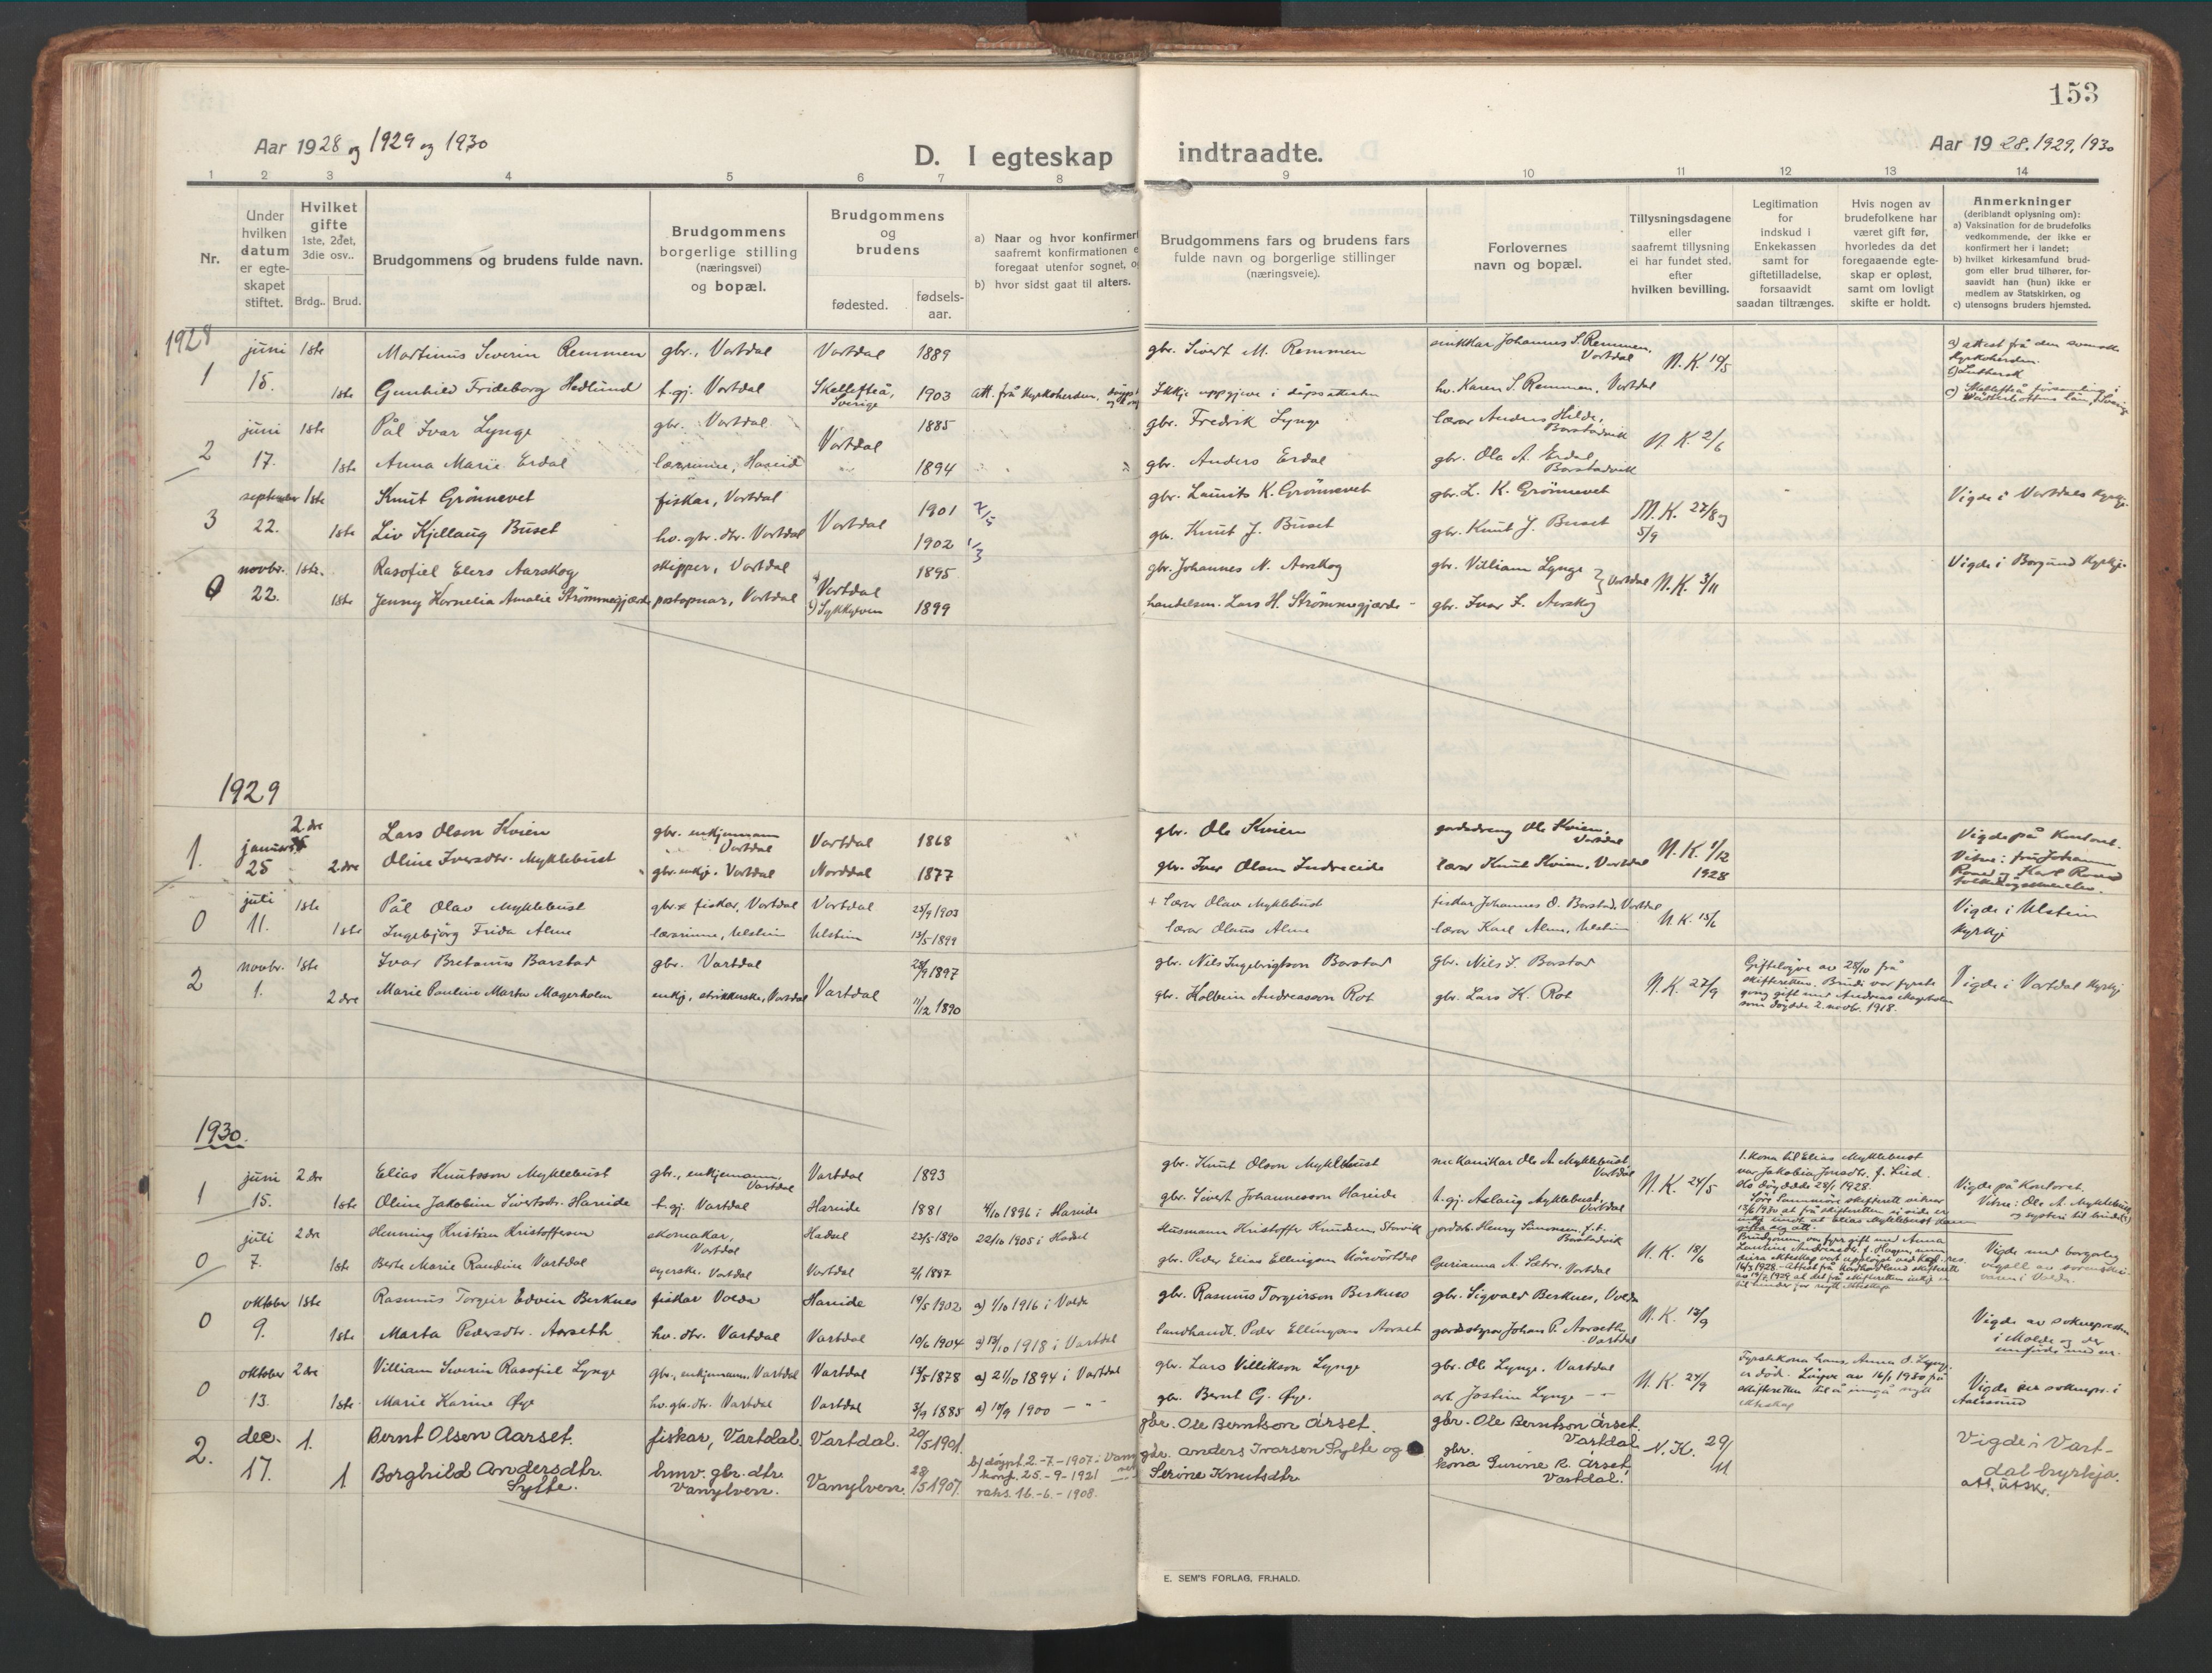 153
Aar 1928 og 1929 og 1930
D. I egteskap indtraadte.
Aar 1928, 1929, 1930
1 2 3 4 5 6 7 8 9 10 11 12 13 14
Nr.
Under hvilken datum er egte-skapet stiftet.
Hvilket gifte 1ste, 2det, 3die osv..
Brdg.. Brud.
Brudgommens og brudens fulde navn.
Brudgommens borgerlige stilling (næringsvei) og bopæl.
Brudgommens og brudens
fødested.
fødsels-aar.
a) Naar og hvor konfirmert
saafremt konfirmationen e
foregaat utenfor sognet, o
b) hvor sidst gaat til alters.
Brudgommens fars og brudens fars
fulde navn og borgerlige stillinger
(næringsveie).
Forlovernes
navn og bopæl.
Tillysningsdagene
eller
saafremt tillysning
ei har fundet sted,
efter
hvilken bevilling.
Legitimation
for
indskud i
Enkekassen
samt for
giftetilladelse,
forsaavidt
saadan tiltrænges.
Hvis nogen av
brudefolkene har
været gift før,
hvorledes da det
foregaaende egte-
skap er opløst,
samt om lovligt
skifte er holdt.
Anmerkninger
(deriblandt oplysning om):
a) Vaksination for de brudefolks
vedkommende, der ikke er
konfirmert her i landet;
b) hvilket kirkesamfund brud-
gom eller brud tilhører, for-
saavidt han (hun) ikke er
medlem av Statskirken, og
c) utensogns bruders hjemsted.
1928
1 juni 1ste Martinus Severin Remmen gbr., Vartdal Vartdal 1889 gbr. Sivert M. Remmen Johannes S. Remmen, Vartdal N.K. 19/5 a) attest frå den svenske kyrkoherden.
15. 1ste Gunhild Frideborg Hedlund t.gj. Vartdal Skellefteå, Sverige 1903 att. frå kyrkoherden. Ikkje uppgjeve i dåpsattesten hv. Karen S. Remmen, Vartdal b) Luthersk c) Skellefteå församling i Västerbottens län, Sverige
2 juni 1ste Pål Ivar Lynge gbr. Vartdal Vartdal 1885 gbr. Fredrik Lynge lærar Anders Hilde, Barstadvik N.K. 2/6
17. 1ste Anna Marie Erdal lærarinne, Hareid 1894 gbr. Anders Erdal gbr. Ola A. Erdal, Barstadvik
3 september 1ste Knut Grönnevet fiskar, Vartdal Vartdal 1901 gbr. Laurits K. Grönnevet gbr. L. K. Grönnevet N.K. 27/8 og 5/9 Vigde i Vartdals kyrkje.
22. 1ste Liv Kjellaug Buset hv. gbr. dtr. Vartdal 1902 1/3 gbr. Knut J. Buset gbr. Knut J. Buset
0 novbr. 1ste. Rasofiel Elers Aarskog skipper, Vartdal Vartdal 1895 gbr. Johannes N. Aarskog gbr. Villiam Lynge Vartdal N.K. 3/11 Vigde i Borgund kyrkje.
22. 1ste Jenny Kornelia Amalie Strömmegjærde postopnar, Vartdal Sykkylven 1899 handelsm. Lars H. Strömmegjærde gbr. Ivar F. Aarskog
1929
1. januar 2.dre Lars Olson Kvien gbr. enkjemann Vartdal Vartdal 1868 gbr. Ole Kvien gardsdreng Ole Kvien, Vartdal N.K. 1/12 1928 Vigde på kontoret.
25 2.dre Oline Iversdtr. Myklebust gbr. enkje. Vartdal Norddal 1877 gbr. Iver Olson Indreeide lærar Knut Kvien, Vartdal Vitne: fru Johanne
0 juli 1ste Pål Olav Myklebust gbr. fiskar, Vartdal Vartdal 25/9 1903 + lærar Olav Myklebust fiskar Johannes O. Barstad, Vartdal N.K. 15/6 Vigde i Ulstein kyrkje
11. 1ste Ingebjörg Frida Alme lærarinne, Ulstein Ulstein 13/5 1899 lærar Olaus Alme lærar Karl Alme, Ulstein
2 novbr. 1ste Ivar Bretanus Barstad gbr. Vartdal Vartdal 28/9 1897 gbr. Nils Ingebrigtson Barstad gbr. Nils I. Barstad N.K. 27/9 Giftelöyve av 25/10 frå skifteretten. Brudi var fyrste gong gift med Andreas Magerholm som döydde 2. novbr. 1918. Vigde i Vartdal kyrkje
1. 2dre Marie Pauline Marta Magerholm enkje, strikkerske, Vartdal 11/12 1890 gbr. Kolbein Andreasson Rot gbr. Lars K. Rot
1930.
1 juni 2dre Elias Knutsson Myklebust gbr., enkjemann, Vartdal Vartdal 1893 gbr. Knut Olson Myklebust mekanikar Ole A. Myklebust, Vartdal N.K. 24/5 1. kona til Elias Myklebust var Jakobia Jonsdtr. f. Lied. Ho döydde 28/1 1928. Vigde på kontoret.
15. 1ste Oline Jakobine Sivertsdtr. Hareide t.gj. Vartdal Hareide 1881 4/10 1896 i Hareide gbr. Sivert Johannesson Hareide t.gj. Aslaug Myklebust, Vartdal Vitne: Ole A. Myklebust og systeri til brudi
0 juli 2dre Henning Kristian Kristoffersen skomakar, Vartdal Hadsel 23/5 1890 22/10 1905 i Hadsel Husmann Kristoffer Knudsen, Storvik gardsb. Henry Simonsen, f.t. Barstadvik N.K. 18/6 Vigde med borgarleg vigsll av sorenskrivaren i Volda.
7. 1ste Berte Marie Randine Vartdal syerske. Vartdal Vartdal 2/1 1887 gbr. Peder Elias Ellingson Vartdal Gurianna A. Sætre, Vartdal
0 oktober 1ste Rasmus Torgeir Edvin Berknes fiskar Volda Hareide 19/5 1902 a) 1/10 1916 i Volda gbr. Rasmus Torgeirson Berknes gbr. Sigvald Berknes, Volda N.K. 13/9 Vigde av soknepresten i Molde
9. 1ste Marta Pedersdtr. Aarseth hv. dtr. Vartdal Vartdal 10/6 1904 a) 13/10 1918 i Vartdal landhandl. Peder Ellingson Aarset gardsstyrar Johan P. Aarseth, Vartdal
0 oktober 2dre Villiam Severin Rasofiel Lynge gbr., enkjemann, Vartdal Vartdal 14/5 1878 a) 21/10 1894 i Vartdal gbr. Lars Villikson Lynge gbr. Ole Lynge, Vartdal N.K. 24/9 Fyrstekona hans, Anna O. Lynge, er död. Vigde av soknepr. i Aalesund
13. 1ste Marie Karine Øye hv. gbr. dtr. Vartdal Vartdal 3/9 1885 a) 10/9 1900 — " gbr. Bernt G. Øye. arb. Jostein Lynge — "
2. dec. 1. Bernt Olsen Aarset. fiskar, Vartdal. Vartdal. 20/5 1901. gbr. Ole Berntson Årset. gbr. Ole Berntson Årset. Vartdal N.K. 29/11 Vigde i Vartdal kyrkja. att. utskr.
17. 1 Borghild Andersdtr. Sylte. hmv. gbr. dtr. Vanylven. Vanylven. 28/5 1907. b) döypt 2.-7.-1907 i Vanylven konf. 25.-9-1921 vaks. 16.-6.-1908. gbr. Anders Ivarsen Sylte og Serine Knutsdtr. gbr. kona Gurine R. Årset, Vartdal.
E. SEM'S FORLAG, FR.HALD.